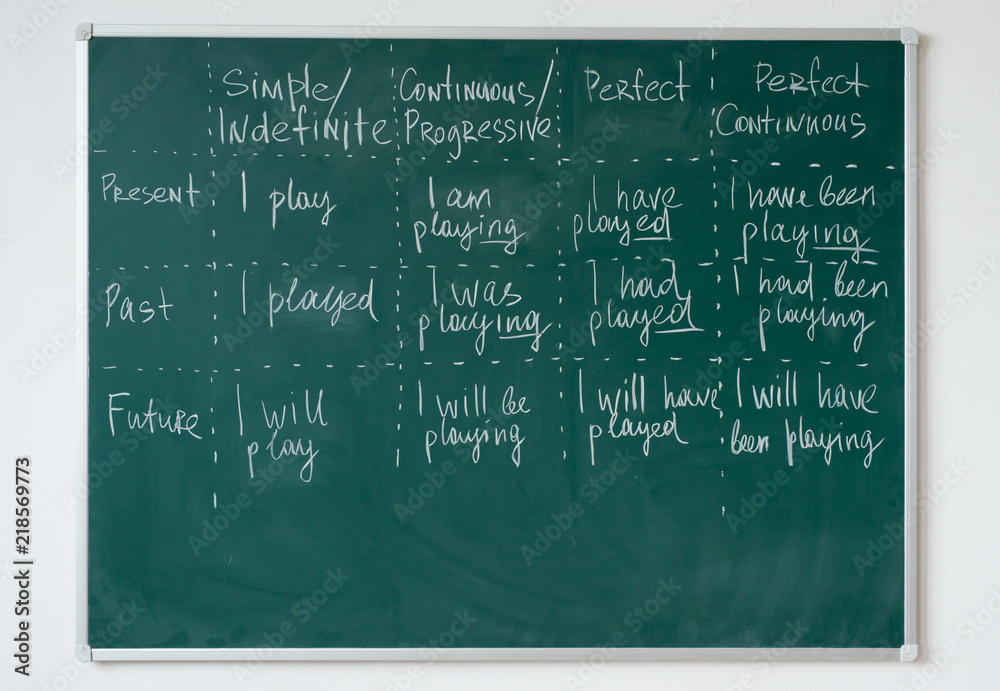 Simple/ Continuous/ Perfect Perfect
Indefinite Progressive Continuous
Present I play I am I have I have been
playing played playing
Past I played I was I had I had been
playing played playing
Future I will I will be I will have I will have
play playing played been playing
Adobe Stock | #218569773